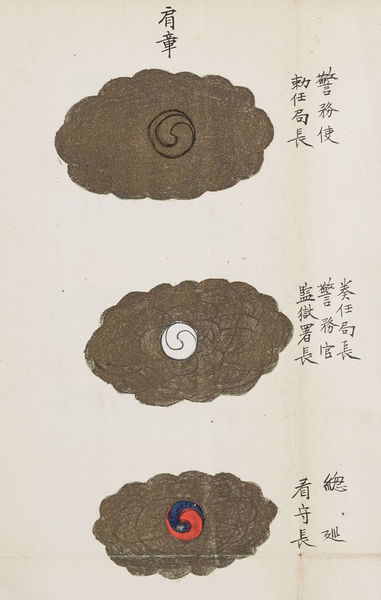 肩章
警務使
勅任局長
奏任局長
警務官
監獄署長
總.廵
看守長